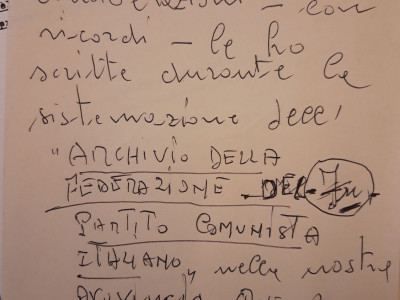 considerazioni - con
ricordi - le ho
scritte durante la
sistemazione dell'
"ARCHIVIO DELLA
FEDERAZIONE DEL
PARTITO COMUNISTA
ITALIANO", nella nostra